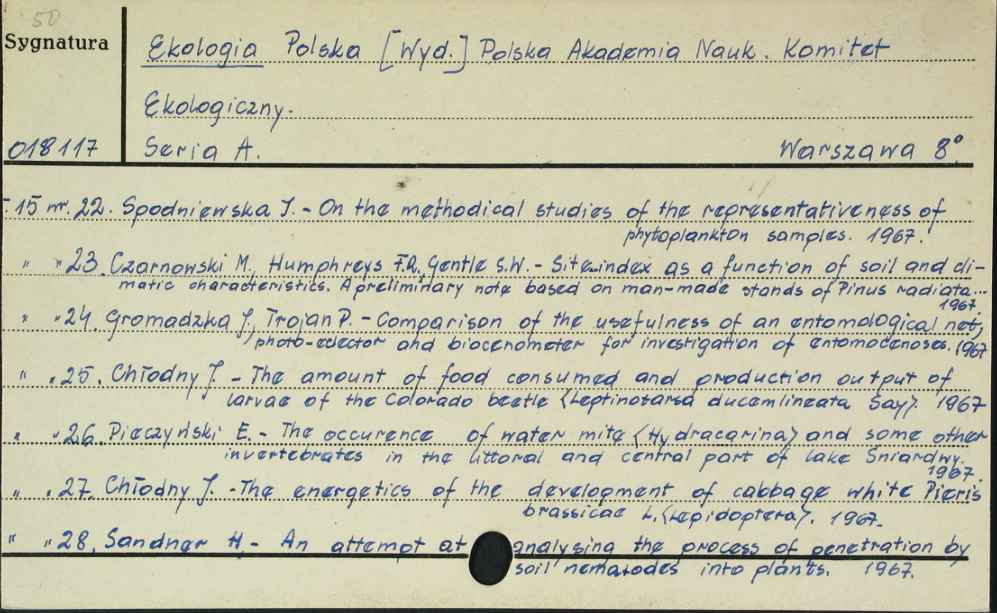 50
Sygnatura
Ekologia Polska [Wyd.] Polska Akademia Nauk. Komitet
Ekologiczny.
018117
Seria A.
Warszawa 8°
T. 15 nr. 22. Spodniewska J. - On the methodical studies of the representativeness of
phytoplankton samples. 1967.
" " 23. Czarnowski M., Humphreys F.R., Gentle S.W. - Site index as a function of soil and cli-
matic characteristics. A preliminary note based on man-made stands of Pinus radiata...
1967.
" " 24. Gromadzka J., Trojan P. - Comparison of the usefulness of an entomological net,
photo-eclector and biocenometer for investigation of entomocenoses. 1967
" " 25. Chłodny J. - The amount of food consumed and production output of
larvae of the Colorado beetle (Leptinotarsa ducemlineata Say). 1967
" " 26. Pieczyński E. - The occurence of water mite (Hydracarina) and some other
invertebrates in the littoral and central part of lake Śniardwy.
1967.
" " 27. Chłodny J. - The energetics of the development of cabbage white Pieris
brassicae L. (Lepidoptera). 1967.
" " 28. Sandner H. - An attempt at analysing the process of penetration by
soil nematodes into plants. 1967.